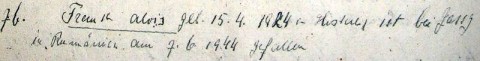 76. alois geb. 15. 4. 1924 in ist bei Jassy
in Rumänien am 7. 6 1944 gefallen